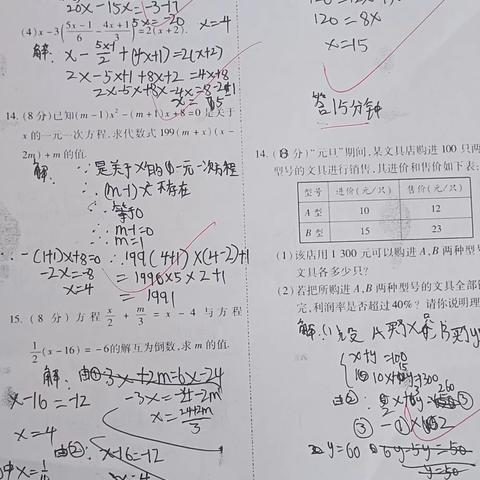 20x-15x=-3-17
5x=-20
x=4
(4)x-3(5x-1/6-4x+1/3)=2(x+2).
解: x-5x-1/2+(4x+1)=2(x+2)
2x-5x+1+8x+2=4x+8
2x-5x+8x-4x=8-2-1
x=5
14.(8分)已知(m-1)x²-(m+1)x+8=0是关于
x的一元一次方程,求代数式199(m+x)(x-
2m)+m的值.
解: ∵是关于x的一元一次方程
∴(m-1)x²不存在
∴等于0
∴m-1=0
∴m=1
-(1+1)x+8=0
-2x=-8
x=4
∴199(4+1)×(4-2)+1
=199×5×2+1
=1991
15.(8分)方程x/2+m/3=x-4与方程
1/2(x-16)=-6的解互为倒数,求m的值.
解: 由①3x+2m=6x-24
x-16=-12
-3x=-24-2m
x=24+2m/3
x=4
由②:x-16=-12
x=4
120=8x
x=15
答15分钟
14.(8分)“元旦”期间,某文具店购进100只两
型号的文具进行销售,其进价和售价如下表:
型号 进价(元/只) 售价(元/只)
A型 10 12
B型 15 23
(1)该店用1 300元可以购进A,B两种型号
文具各多少只?
(2)若把所购进A,B两种型号的文具全部
完,利润率是否超过40%?请你说明理
解:(1)设A买x只B买y
x+y=100
10x+15y=1300
由②:2x+3y=260③
y=60
y=50